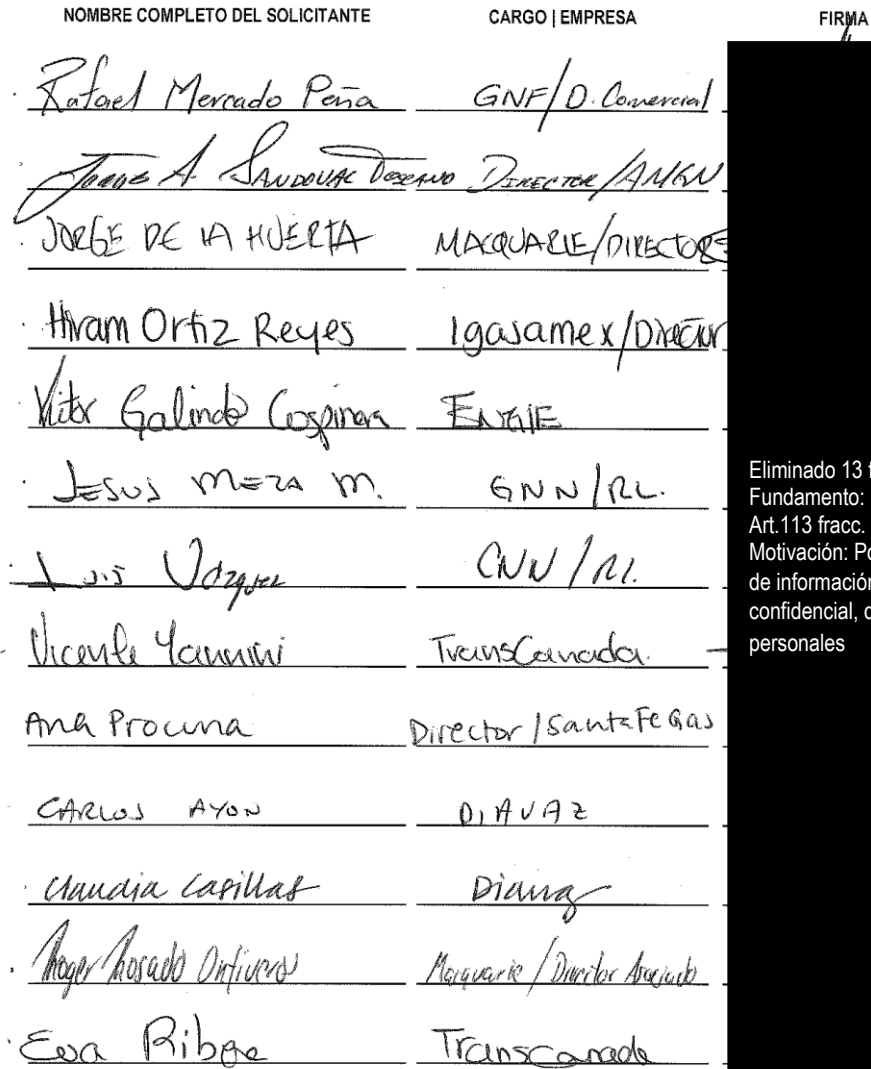 NOMBRE COMPLETO DEL SOLICITANTE CARGO | EMPRESA FIRMA
Rafael Mercado Peña GNF/D. Comercial
A. SANDOVAL DIRECTOR/AMGN
JORGE DE LA HUERTA MACQUARIE/DIRECTOR
Hiram Ortiz Reyes Igasamex/Director
Galindo ENGIE
JESUS MEZA M. GNN/RL.
Luis Vázquez
Vicente Yannini TransCanada.
Ana Procuna Director/SantaFeGas
CARLOS AYON DIAVAZ
Claudia Casillas Diavaz
Rosado Ontiveros Macquarie/Director Asociado
Eva Ribera Transcanada
Eliminado 13 f
Fundamento:
Art.113 fracc.
Motivación: Po
de información
confidencial, d
personales